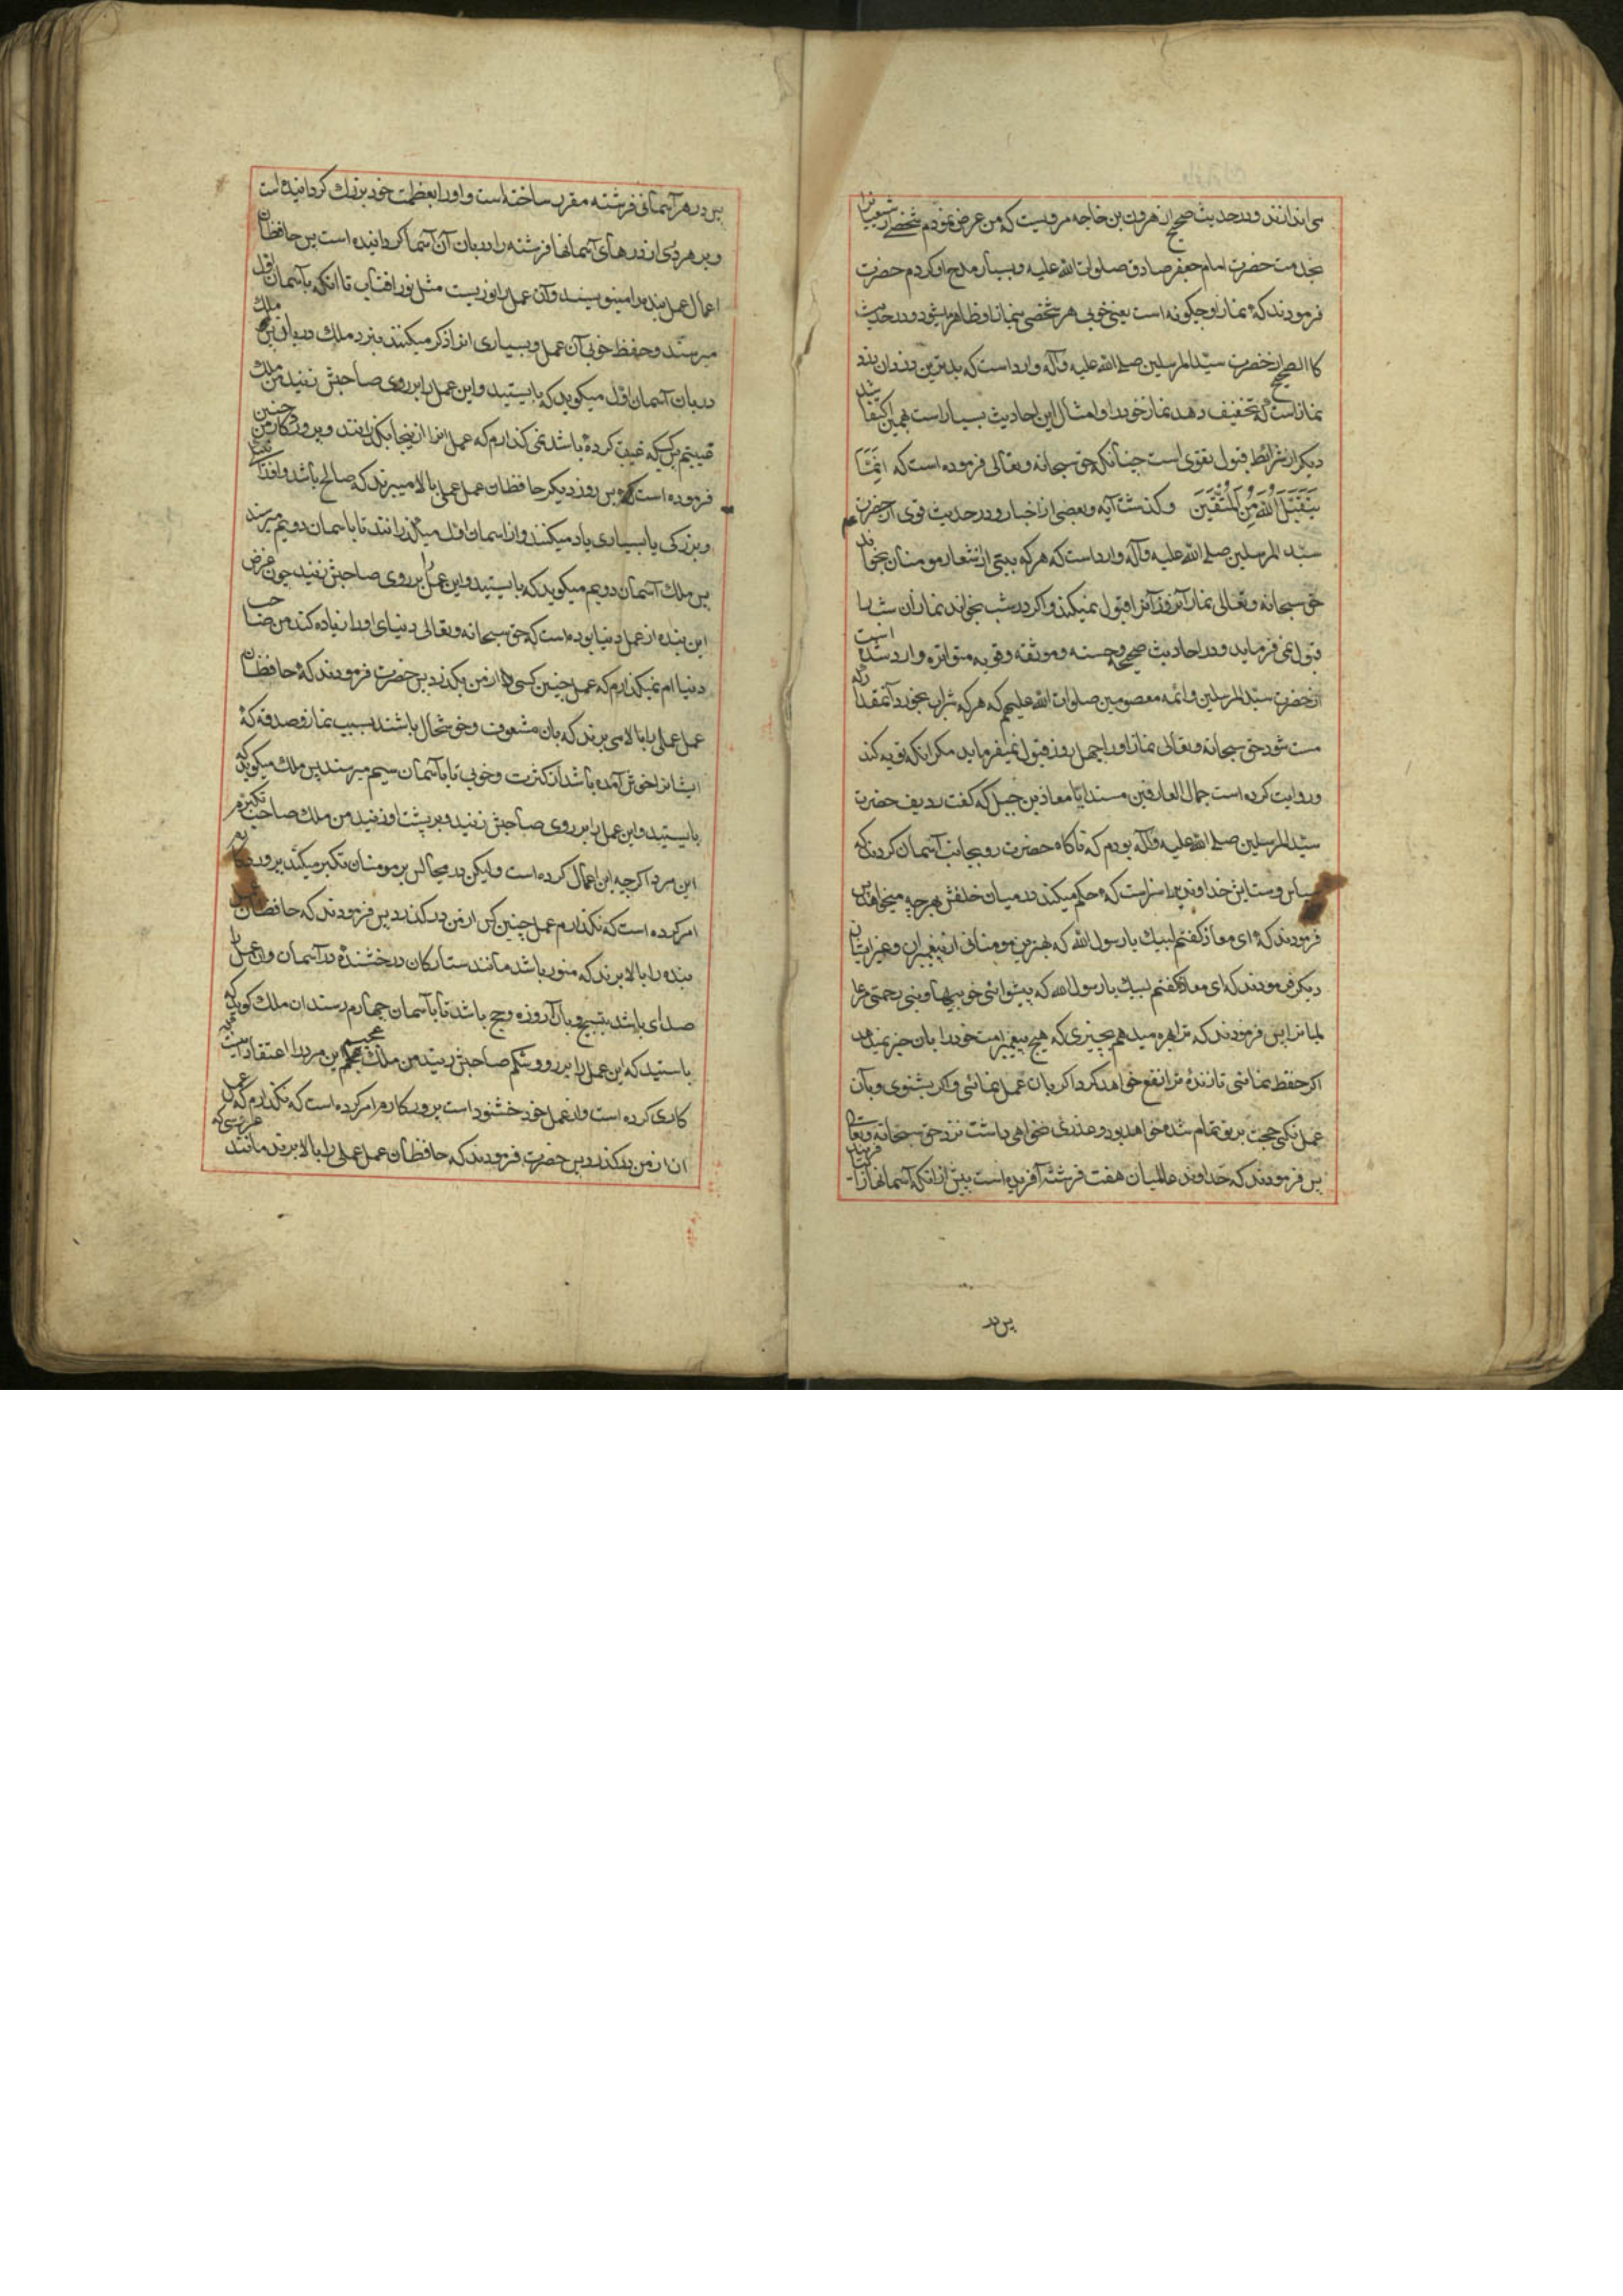 می اندازند و در حدیث صحیح از هرون بن خارجه مرویست که من عرض نمودم شخصی از شیعیان
بخدمت حضرت امام جعفر صادق صلوات الله علیه و بسیار مدح او کردم حضرت
فرمودند که نماز او چگونه است یعنی خوبی هر شخصی بنماز او ظاهر میشود و در حدیث
کالصحیح از حضرت سید المرسلین صلی الله علیه وآله وارد است که بدترین دزدان دزد
نماز است که تخفیف دهد نماز خود را و امثال این احادیث بسیار است بهمین اکتفا شد
دیگر از شرائط قبول تقوی است چنانکه حق سبحانه وتعالی فرموده است که اِنَّمَا
یَتَقَبَّلُ اللهُ مِنَ الْمُتَّقِینَ وکذشت آیه وبعضی از اخبار و در حدیث قوی از حضرت
سید المرسلین صلی الله علیه وآله وارد است که هرکه بیتی از شعار مومنان بخواند
حق سبحانه وتعالی نماز آنروز آنرا قبول نمیکند واکر در شب بخواند نماز آن شب را
قبول نمی فرماید و در احادیث صحیحه وحسنه وموثقه وقویه متواتره وارد شده است
از حضرت سید المرسلین وائمه معصومین صلوات الله علیهم که هرکه شراب بخورد آنمقدار که
مست شود حق سبحانه وتعالی نماز او را چهل روز قبول نمیفرماید مکر انکه توبه کند
و روایت کرده است جمال العارفین مسندا تا معاذ بن جبل که کفت ردیف حضرت
سید المرسلین صلی الله علیه وآله بودم که ناکاه حضرت رو بجانب آسمان کردند که
سپاس وستایش خداوندیرا سزاست که حکم میکند در میان خلقش بهرچه میخواهد پس
فرمودند که ای معاذ کفتم لبیک یا رسول الله که بهترین مومنانی از پیغمبران وغیر ایشان
دیگر فرمودند که ای معاذ کفتم لبیک یا رسول الله که پیشوائی خوبیها ونبی رحمتی مر عا
لمیانرا پس فرمودند که ترا بهره میدهم بچیزی که هیچ پیغمبر امت خود را بان خبر نمیدهد
اکر حفظ نمائی تا زندهٔ ترا نفع خواهد کرد اکر بان عمل نمائی واکر بشنوی وبآن
عمل نکنی حجت بر تو تمام شده خواهد بود وعذری نخواهی داشت نزد حق سبحانه وتعالی
پس فرمودند که خداوند عالمیان هفت فرشته آفریده است پیش از انکه آسمانها را
پس در
پس در هر آسمانی فرشته مقرب ساخته است و او را بعظمت خود بزرک کردانیده است
وبر هر دری از درهای آسمانها فرشته را دربان آن آسما کردانیده است پس حافظان
اعمال عمل بنده را مینویسند وآن عمل را نوریست مثل نور افتاب تا انکه بآسمان اول
میرسند وحفظ خوبی آن عمل وبسیاری انرا ذکر میکنند بنزد ملک دربان پس ملک
دربان آسمان اول میکوید که بایستید واین عمل را بر روی صاحبش زنید من ملک
غیبتم پس کسیکه غیبت کرده باشد نمی کذارم که عمل انرا از اینجا بکذرانند وپروردکار من چنین
فرموده است پس روز دیگر حافظان عمل عملی بالا میبرند که صالح باشد و انرا
وبزرکی یا بسیاری یاد میکنند واز اسمان اول میکذرانند تا باسمان دویم میرسند
پس ملک آسمان دویم میکوید که بایستید واین عمل بر روی صاحبش زنید چون غرض
این بنده از عمل دنیا بوده است که حق سبحانه وتعالی دنیای او را زیاده کند من صاحب
دنیا ام نمیکذارم که عمل چنین کسی از من بکذرد پس حضرت فرمودند که حافظان
عمل عملی را بالا می برند که بان مشعوف وخوشحال باشند بسبب نماز وصدقه که
ایشانرا خوش آمده باشد از کثرت وخوبی تا بآسمان سیم میرسند پس ملک میکوید که
بایستید واین عمل را بر روی صاحبش زنید وبر پشت او زنید من ملک صاحب تکبرم
این مرد اکرچه این اعمال کرده است ولیکن در مجالس بر مومنان تکبر میکند پروردکار
امر کرده است که نکذارم عمل چنین کس از من درکذرد پس فرمودند که حافظان عمل
بنده را بالا برند که منور باشد مانند ستارکان درخشنده در آسمان وان عمل را
صدای باشد بتسبیح وبآن روزه وحج باشد تا بآسمان چهارم رسند ان ملک کوید که
باستید که این عمل را بر رو وشکم صاحبش زنید من ملک عجبم این مرد را اعتقاد اینست که
کاری کرده است واز عمل خود خشنود است پروردکارم امر کرده است که نکذارم که عمل
ان از من درکذرد پس حضرت فرمودند که حافظان عمل عملی را بالا برند مانند عروسی که